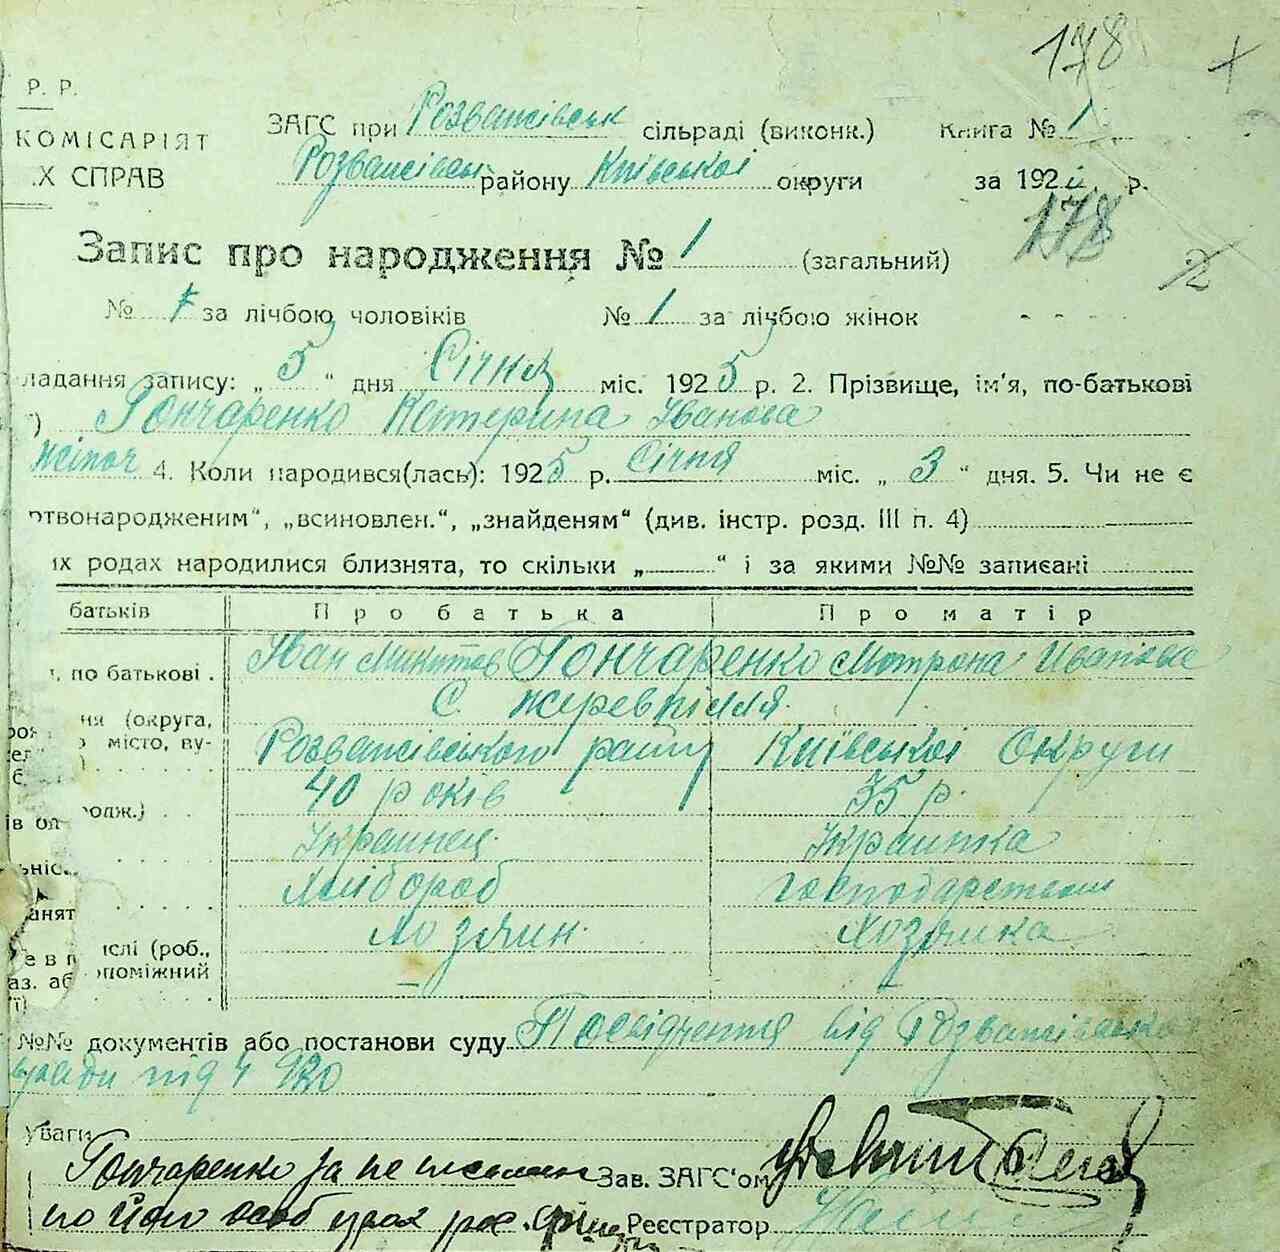 178 +
Р. Р.
КОМІСАРІЯТ
Х СПРАВ
ЗАГС при Розважівськ сільраді (виконк.) Книга № 1
Розважівськ району Київської округи за 192 р.
178
2
Запис про народження № 1 (загальний)
№ за лічбою чоловіків № 1 за лічбою жінок
ладання запису: „ 5 “ дня Січня міс. 1925 р. 2. Прізвище, ім'я, по-батькові
) Гончаренко Катерина Іванова
жіноч 4. Коли народився(лась): 1925 р. Січня міс. „ 3 “ дня. 5. Чи не є
ртвонародженим“, „всиновлен.“, „знайденям“ (див. інстр. розд. III п. 4)
іх родах народилися близнята, то скільки „ “ і за якими №№ записані
батьків Про батька Про матір
, по батькові . Іван Микитов Гончаренко Мотрона Иванова
С
ня (округа, місто, ву- Розважівського райну Київської Округи
родж.) 40 років 35 р.
Украинец Украинка
Хлібороб господарством
анят Хозяин Хозяика
ислі (роб., опоміжний
№№ документів або постанови суду Посвідчення від Розважівсько
ради під ч 920
Уваги
Гончаренко за не Зав. ЗАГС'ом
по його Реєстратор